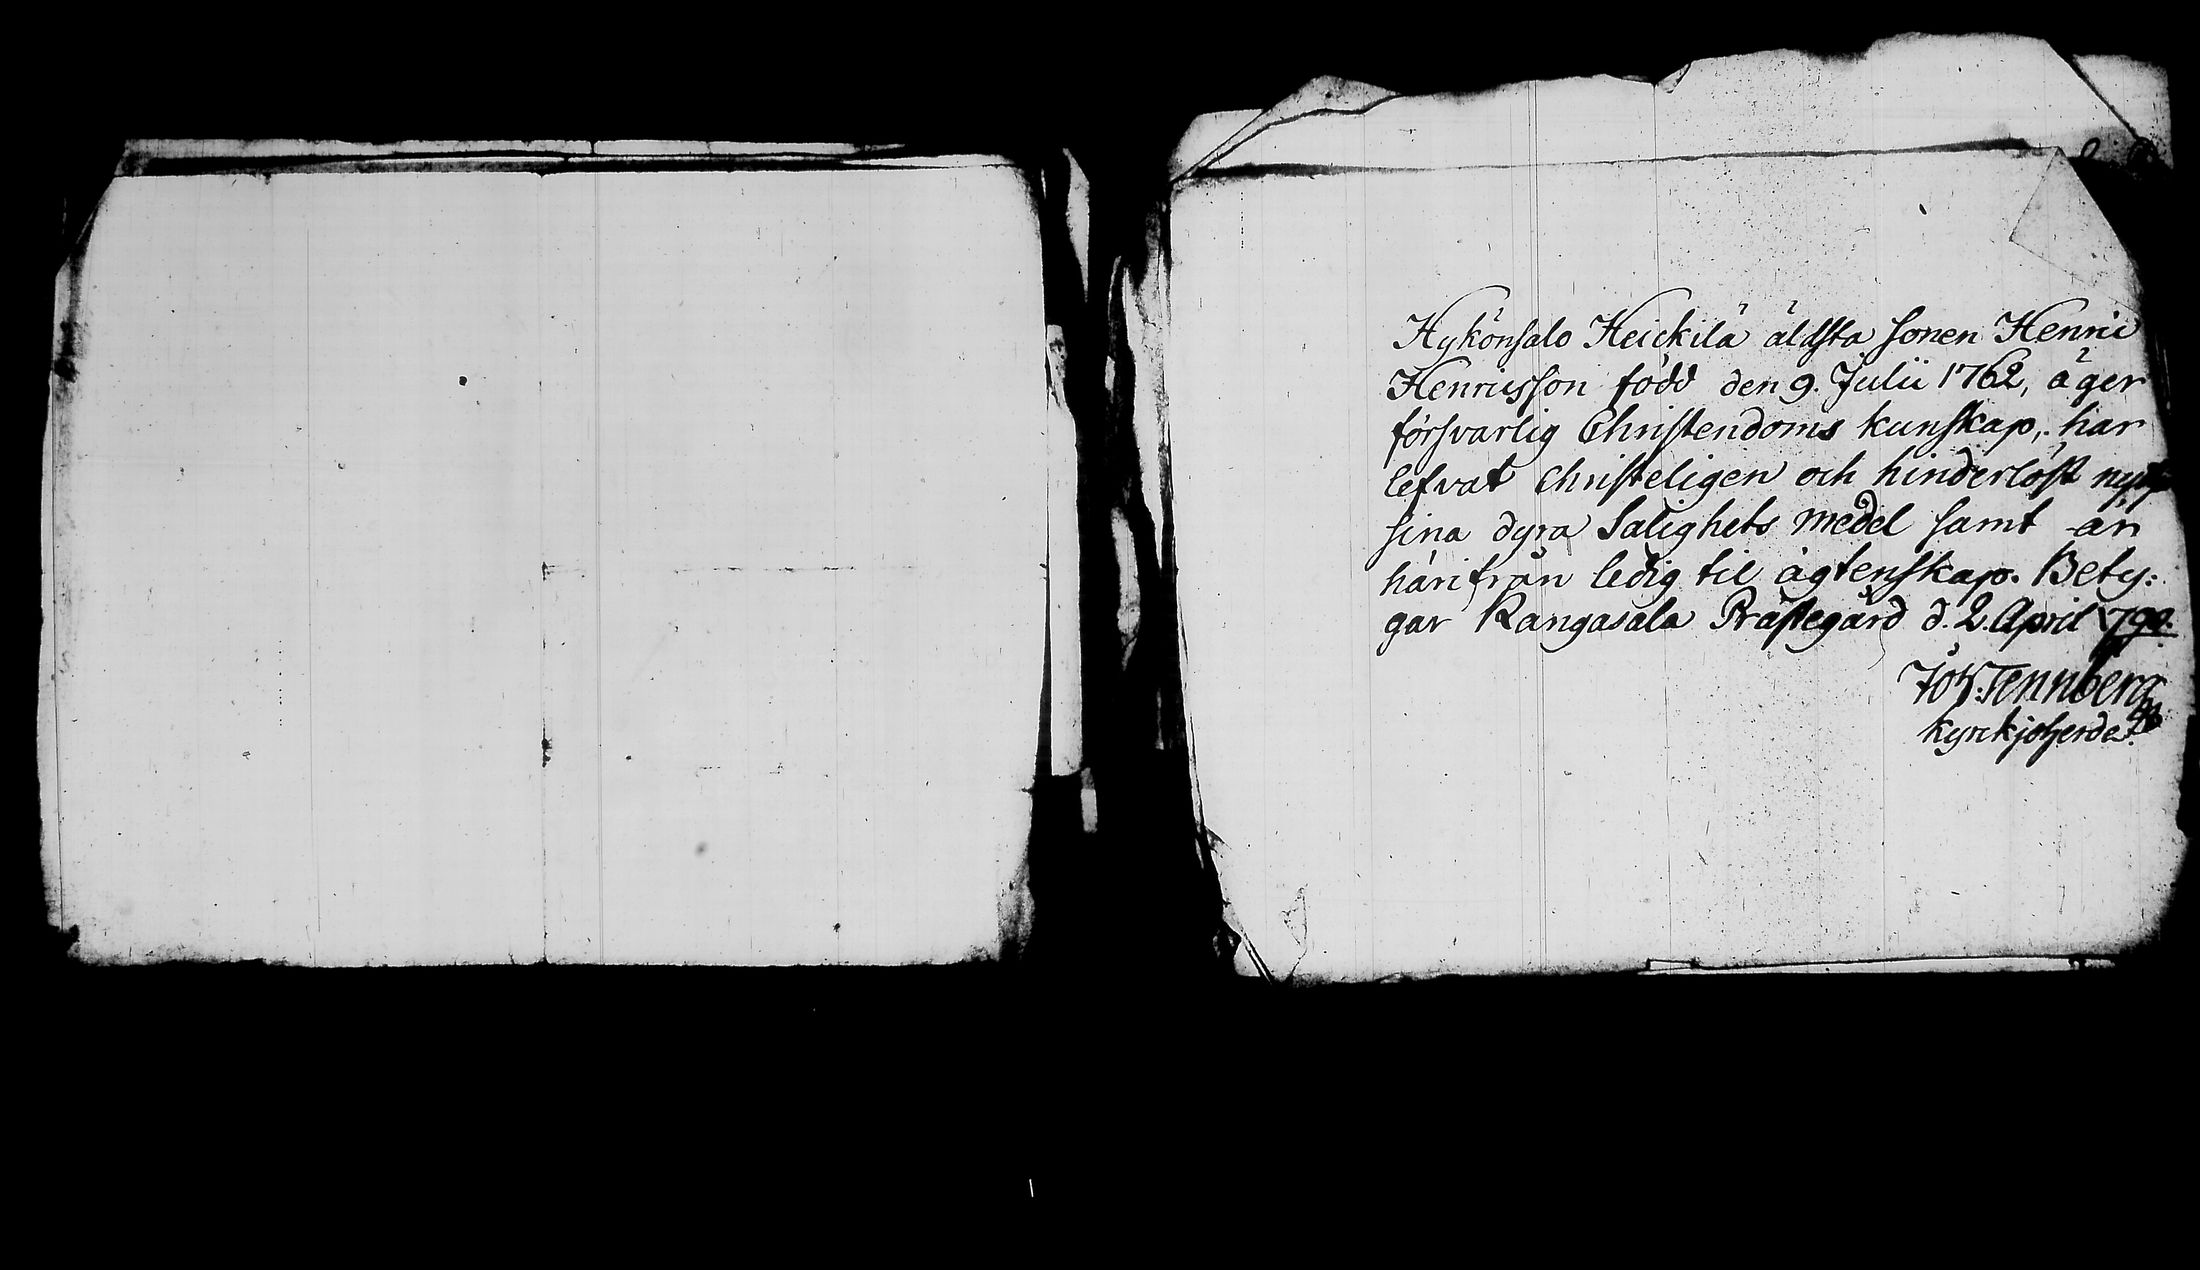 Hykönsalo Heickilä äldsta sonen Henric
Henricsson född den 9. Julii 1762, äger
försvarlig Christendoms kunskap, har
lefvat Christeligen och hinderlöst
sina dyra Salighets medel samt är
härifrån ledig til ägtenskap. Bety:
gar Kangasala Prästegård d. 2. April 1790.
Joh: Tennberg
kyrckjoherde.